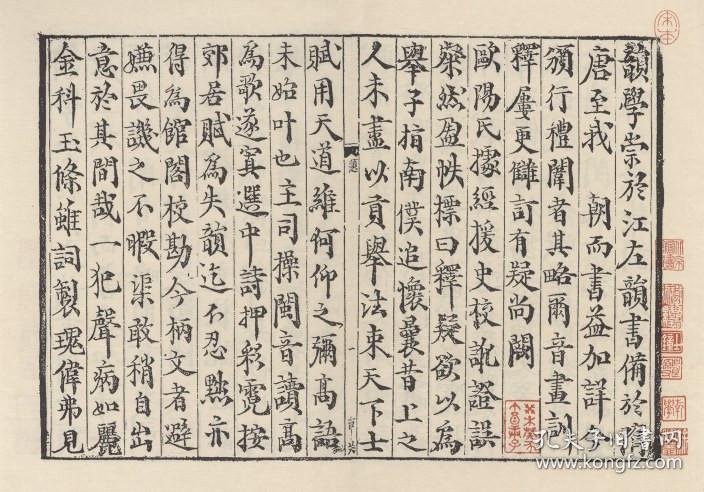 韻學崇於江左韻書備於隋
唐至我　朝而書益加詳今
頒行禮闈者其略爾音畫訓
釋屢更讎訂有疑尚闕
歐陽氏據經援史校訛證誤
粲然盈帙摽曰釋疑欲以為
舉子指南僕追懷曩昔上之
人未盡以貢舉法束天下士
賦用天道維何仰之彌高語
未始叶也主司操閩音讀高
為歌遂寘選中詩押彩霓按
郊居賦為失韻迄不忍黜亦
得為館閣校勘今柄文者避
嫌畏譏之不暇渠敢稍自出
意於其間哉一犯聲病如麗
金科玉條雖詞製瑰偉弗見
孔夫子旧書网
www.kongfz.com